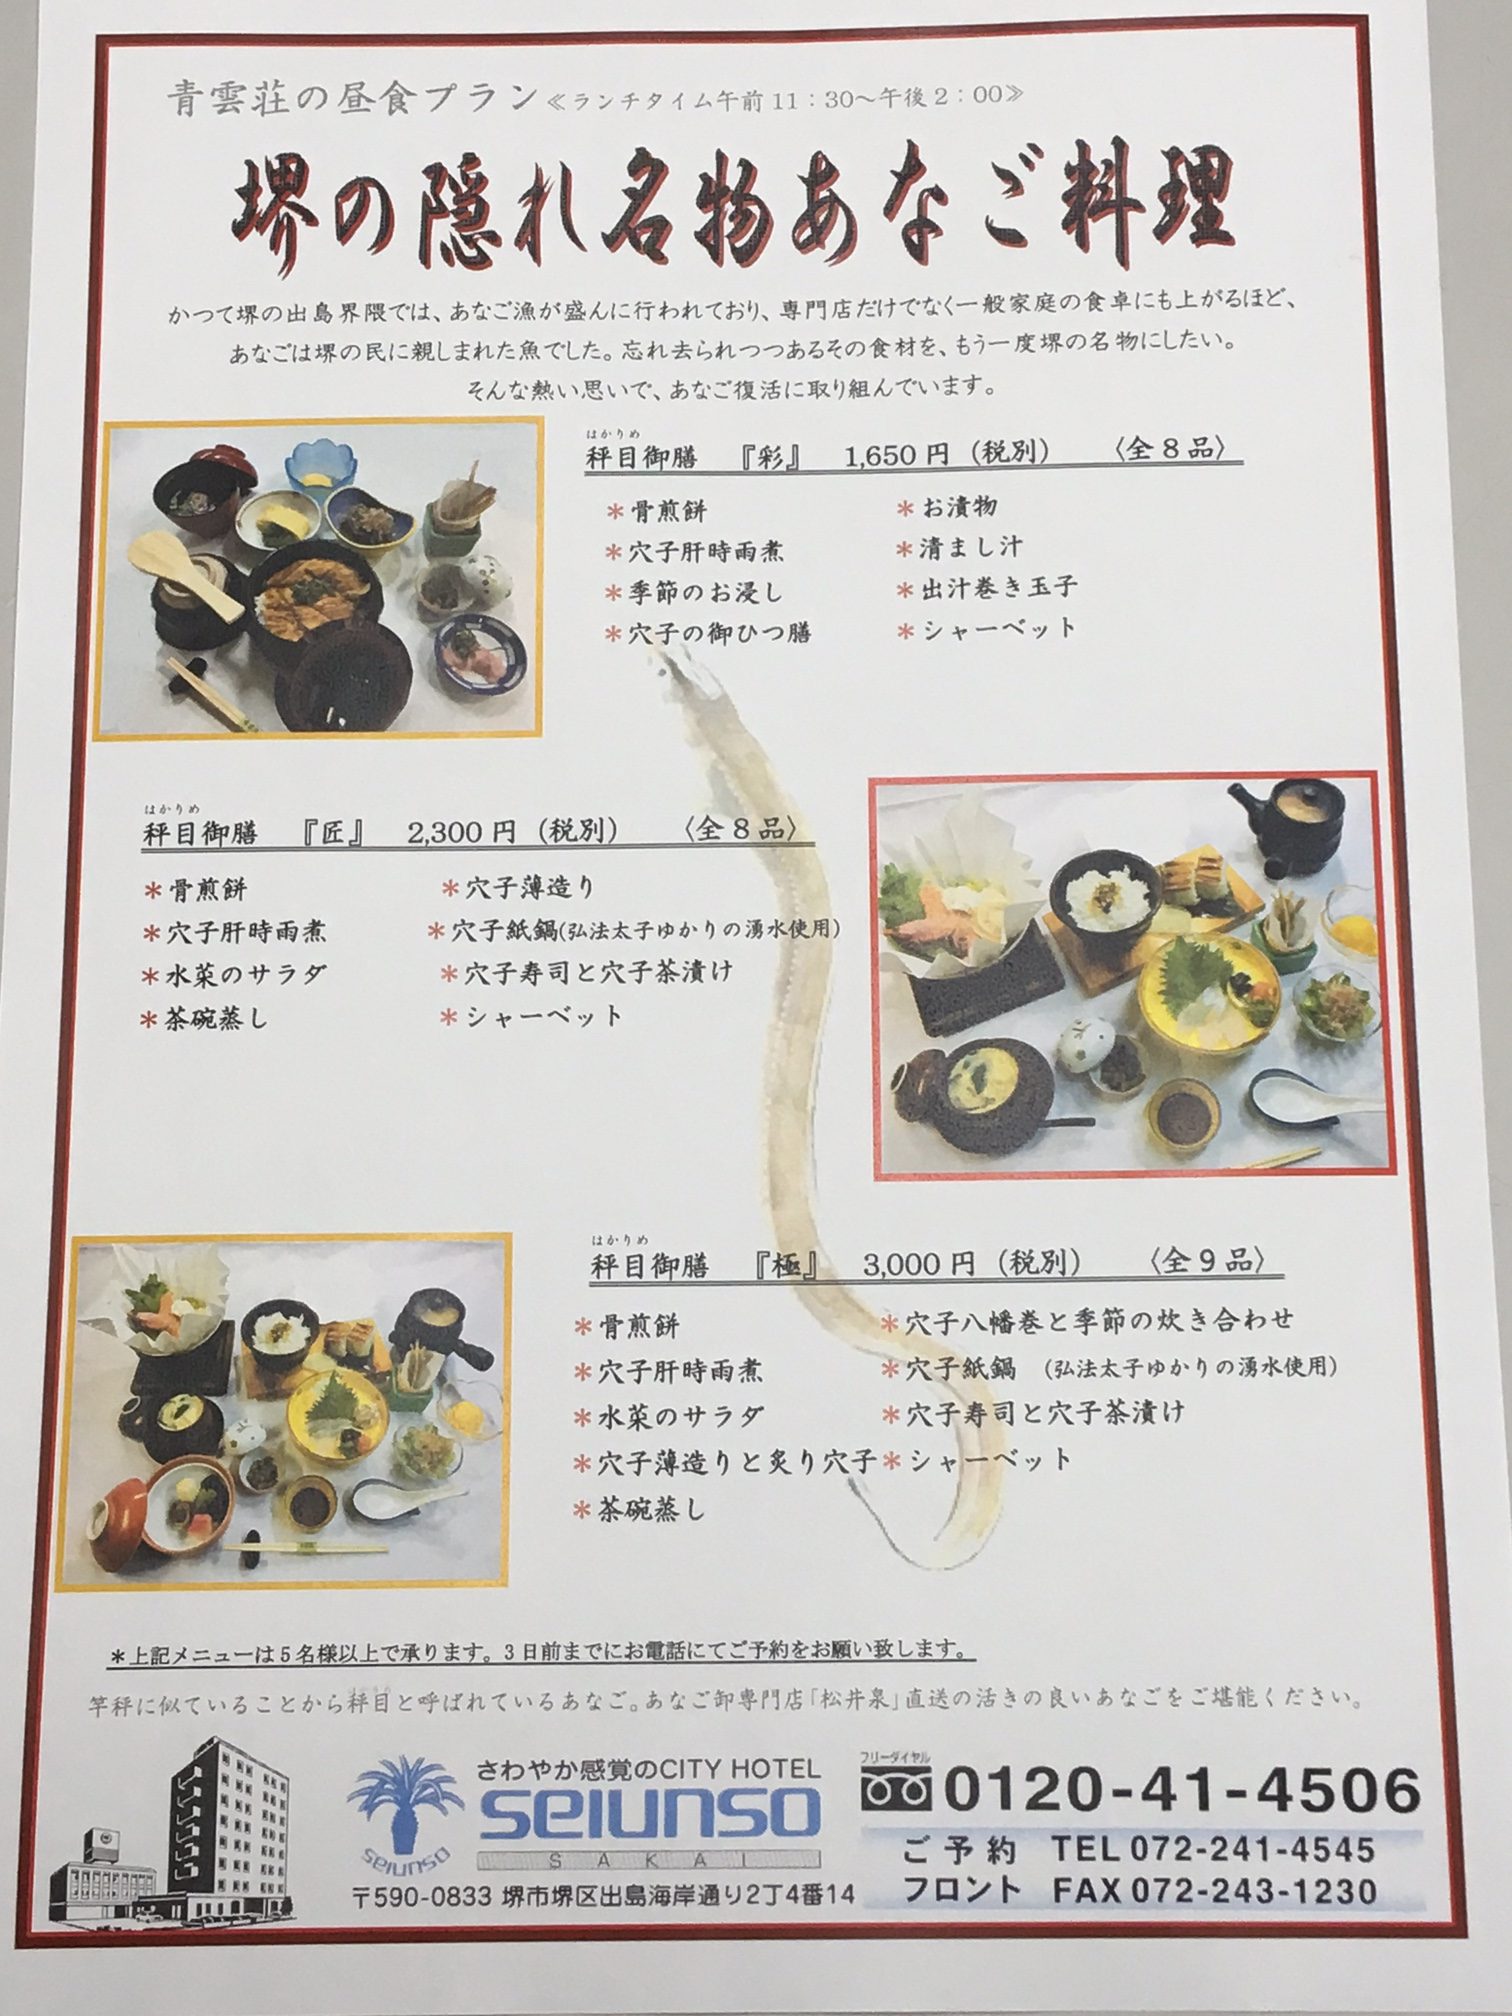 青雲荘の昼食プラン≪ランチタイム午前11：30～午後2：00≫
堺の隠れ名物あなご料理
かつて堺の出島界隈では、あなご漁が盛んに行われており、専門店だけでなく一般家庭の食卓にも上がるほど、
あなごは堺の民に親しまれた魚でした。忘れ去られつつあるその食材を、もう一度堺の名物にしたい。
そんな熱い思いで、あなご復活に取り組んでいます。
はかりめ
秤目御膳 『彩』 1,650円（税別） 〈全8品〉
＊骨煎餅
＊穴子肝時雨煮
＊季節のお浸し
＊穴子の御ひつ膳
＊お漬物
＊清まし汁
＊出汁巻き玉子
＊シャーベット
はかりめ
秤目御膳 『匠』 2,300円（税別） 〈全8品〉
＊骨煎餅
＊穴子肝時雨煮
＊水菜のサラダ
＊茶碗蒸し
＊穴子薄造り
＊穴子紙鍋(弘法太子ゆかりの湧水使用)
＊穴子寿司と穴子茶漬け
＊シャーベット
はかりめ
秤目御膳 『極』 3,000円（税別） 〈全9品〉
＊骨煎餅
＊穴子肝時雨煮
＊水菜のサラダ
＊穴子薄造りと炙り穴子
＊茶碗蒸し
＊穴子八幡巻と季節の炊き合わせ
＊穴子紙鍋 （弘法太子ゆかりの湧水使用）
＊穴子寿司と穴子茶漬け
＊シャーベット
＊上記メニューは5名様以上で承ります。3日前までにお電話にてご予約をお願い致します。
竿秤に似ていることから秤目と呼ばれているあなご。あなご卸専門店「松井泉」直送の活きの良いあなごをご堪能ください。
さわやか感覚のCITY HOTEL
seiunso
SAKAI
seiunso
〒590-0833 堺市堺区出島海岸通り2丁4番14
フリーダイヤル
0120-41-4506
ご予約 TEL 072-241-4545
フロント FAX 072-243-1230